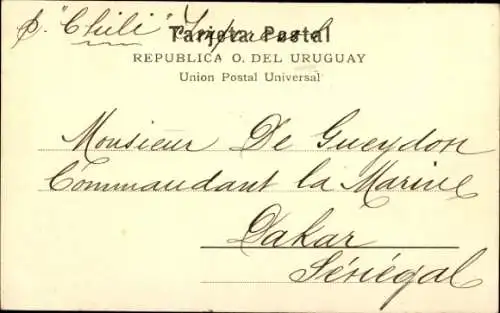 p. "Chili"
Tarjeta Postal
REPUBLICA O. DEL URUGUAY
Union Postal Universal
Monsieur De Gueydon
Commandant la Marine
Dakar
Sénégal